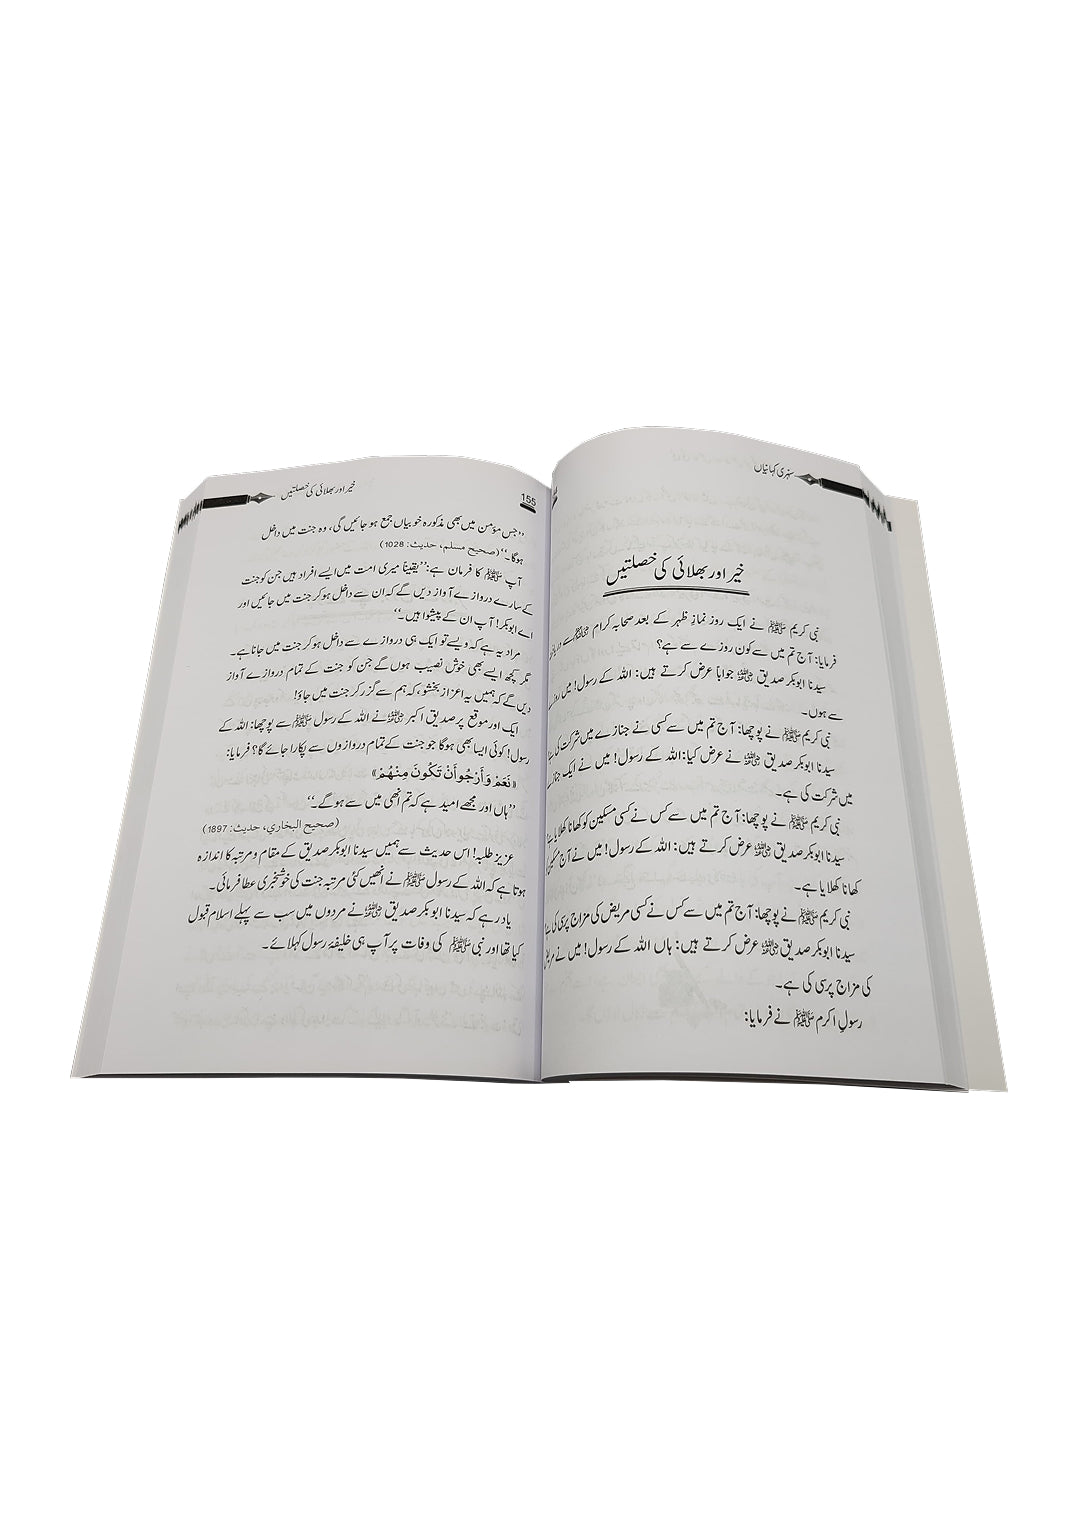 سنہری کہانیاں
خیر اور بھلائی کی خصلتیں
نبی کریم ﷺ نے ایک روز نمازِ ظہر کے بعد صحابہ کرام
فرمایا: آج تم میں سے کون روزے سے ہے؟
سیدنا ابوبکر صدیق رضی اللہ عنہ جواباً عرض کرتے ہیں: اللہ کے رسول! میں روزے
سے ہوں۔
نبی کریم ﷺ نے پوچھا: آج تم میں سے کسی نے جنازے میں شرکت کی
سیدنا ابوبکر صدیق رضی اللہ عنہ نے عرض کیا: اللہ کے رسول! میں نے ایک
میں شرکت کی ہے۔
نبی کریم ﷺ نے پوچھا: آج تم میں سے کس نے کسی مسکین کو کھانا کھلایا
سیدنا ابوبکر صدیق رضی اللہ عنہ عرض کرتے ہیں: اللہ کے رسول! میں نے آج
کھانا کھلایا ہے۔
نبی کریم ﷺ نے پوچھا: آج تم میں سے کس نے کسی مریض کی مزاج پرسی کی
سیدنا ابوبکر صدیق رضی اللہ عنہ عرض کرتے ہیں: ہاں اللہ کے رسول! میں نے
کی مزاج پرسی کی ہے۔
رسول اکرم ﷺ نے فرمایا:
خیر اور بھلائی کی خصلتیں
155
’’جس مؤمن میں بھی مذکورہ خوبیاں جمع ہو جائیں گی، وہ جنت میں داخل
ہوگا۔‘‘ (صحیح مسلم، حدیث: 1028)
آپ ﷺ کا فرمان ہے: ’’یقیناً میری امت میں ایسے افراد ہیں جن کو جنت
کے سارے دروازے آواز دیں گے کہ ان سے داخل ہو کر جنت میں جائیں اور
اے ابوبکر! آپ ان کے پیشوا ہیں۔‘‘
مراد یہ ہے کہ ویسے تو ایک ہی دروازے سے داخل ہو کر جنت میں جانا ہے۔
مگر کچھ ایسے بھی خوش نصیب ہوں گے جن کو جنت کے تمام دروازے آواز
دیں گے کہ ہمیں یہ اعزاز بخشو، کہ ہم سے گزر کر جنت میں جاؤ!
ایک اور موقع پر صدیق اکبر رضی اللہ عنہ نے اللہ کے رسول ﷺ سے پوچھا: اللہ کے
رسول! کوئی ایسا بھی ہوگا جو جنت کے تمام دروازوں سے پکارا جائے گا؟ فرمایا:
«نَعَمْ وَأَرْجُو أَنْ تَكُونَ مِنْهُمْ»
’’ہاں اور مجھے امید ہے کہ تم انھی میں سے ہو گے۔‘‘
(صحیح البخاري، حدیث: 1897)
عزیز طلبہ! اس حدیث سے ہمیں سیدنا ابوبکر صدیق کے مقام و مرتبہ کا اندازہ
ہوتا ہے کہ اللہ کے رسول ﷺ نے انھیں کئی مرتبہ جنت کی خوشخبری عطا فرمائی۔
یاد رہے کہ سیدنا ابوبکر صدیق رضی اللہ عنہ نے مردوں میں سب سے پہلے اسلام قبول
کیا تھا اور نبی ﷺ کی وفات پر آپ ہی خلیفۂ رسول کہلائے۔